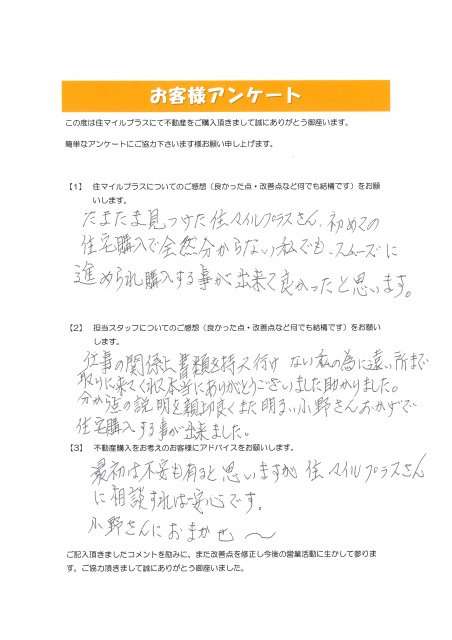 お客様アンケート
この度は住マイルプラスにて不動産をご購入頂きまして誠にありがとう御座います。
簡単なアンケートにご協力下さいます様お願い申し上げます。
【1】 住マイルプラスについてのご感想（良かった点・改善点など何でも結構です）をお願
いします。
たまたま見つけた住マイルプラスさん、初めての
住宅購入で全然分からない私でも、スムーズに
進められ購入する事が出来て良かったと思います。
【2】 担当スタッフについてのご感想（良かった点・改善点など何でも結構です）をお願い
します。
仕事の関係上、書類を持って行けない私の為に遠い所まで
取りに来てくれて本当にありがとうございました助かりました。
分からない点の説明を親切良くまた明るい小野さんおかげで
住宅購入する事が出来ました。
【3】 不動産購入をお考えのお客様にアドバイスをお願いします。
最初は不安も有ると思いますが、住マイルプラスさん
に相談すれば安心です。
小野さんにおまかせ〜
ご記入頂きましたコメントを励みに、また改善点を修正し今後の営業活動に生かして参りま
す。ご協力頂きまして誠にありがとう御座いました。